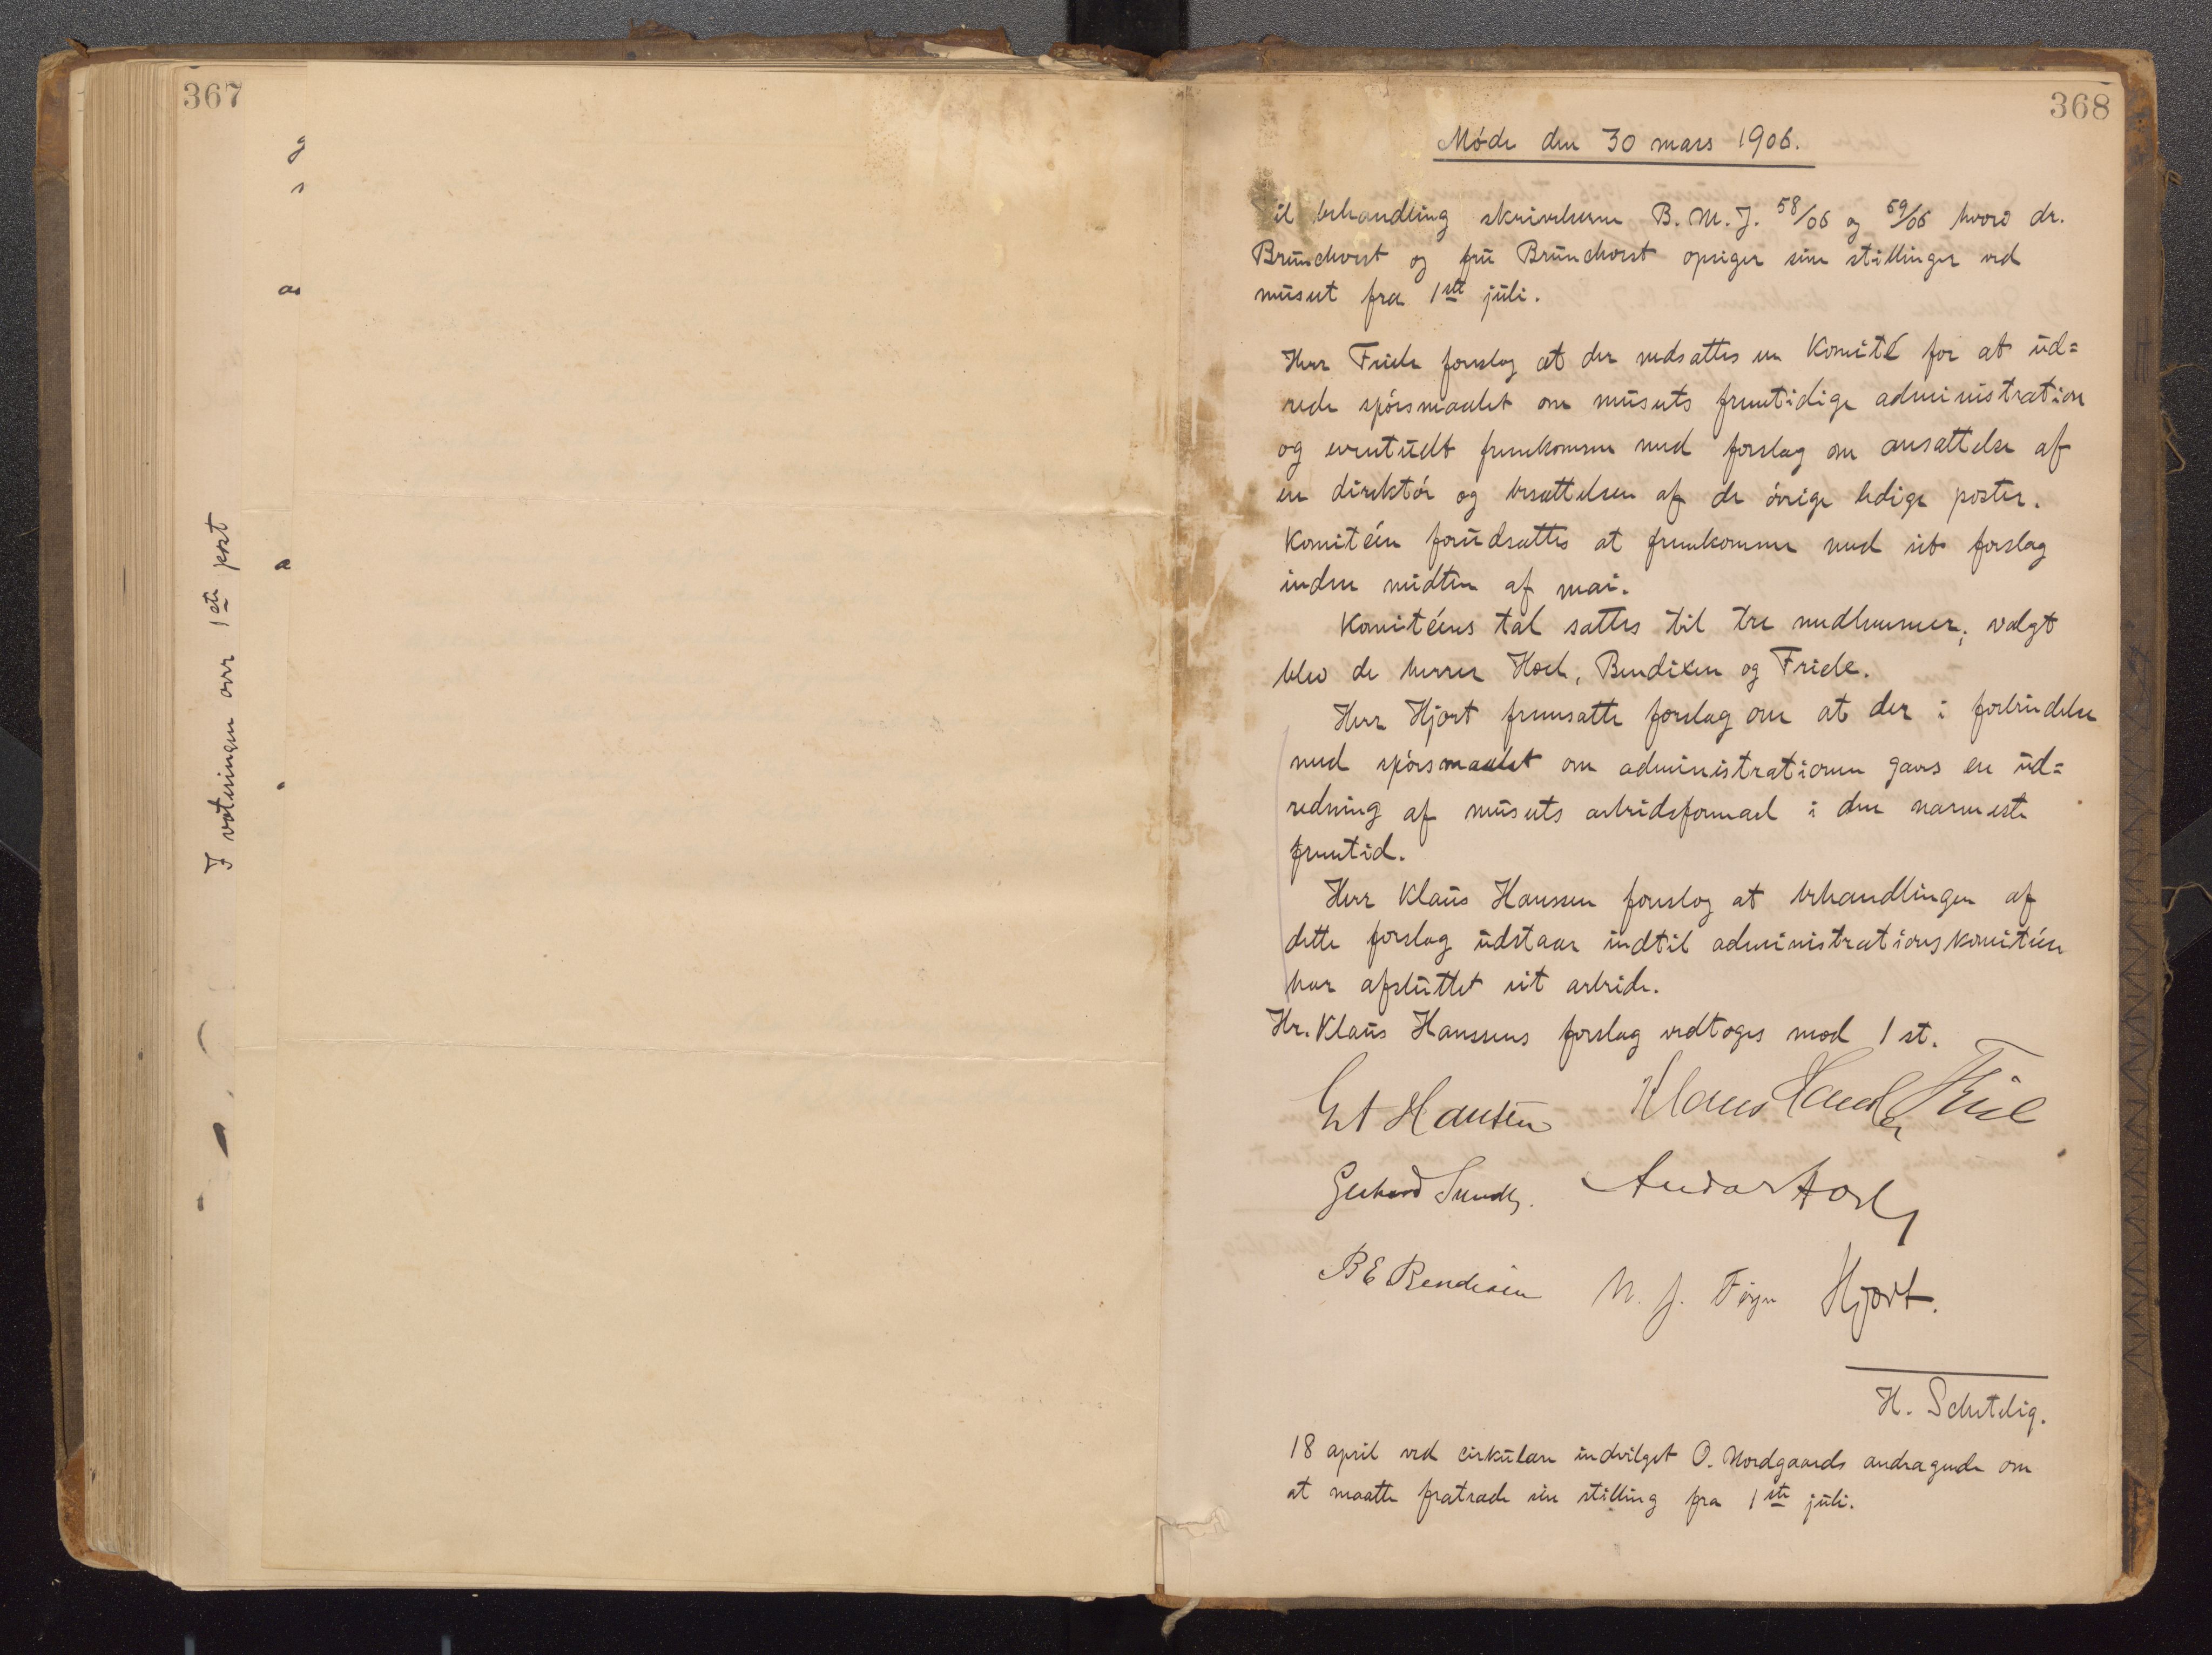 367
I voteringen over 1ste post
368
Møde den 30 mars 1906.
il behandling skrivelserne B. M. J. 58/06 og 59/06 hvori dr.
Brunchorst og fru Brunchorst opsiger sine stillinger ved
museet fra 1ste juli.
Herr Friele forslog at der nedsattes en komité for at ud=
rede spörsmaalet om museets fremtidige administration
og eventuelt fremkomme med forslag om ansættelse af
en direktör og besættelsen af de övrige ledige poster.
Komitéen forudsættes at fremkomme med sit forslag
inden midten af mai.
Komitéens tal sattes til tre medlemmer; valgt
blev de herrer Hoel, Bendixen og Friele.
Herr Hjort fremsatte forslag om at der i forbindelse
med spörsmaalet om administrationen gaves en ud=
redning af museets arbeidsformaal i den nærmeste
fremtid.
Herr Klaus Hanssen forslog at behandlingen af
dette forslag udstaar indtil administrationskomitéen
har afsluttet sit arbeide.
Hr. Klaus Hanssens forslag vedtoges mod 1 st.
Hansen Klaus Hanssen Friele
Gerhard
B E Bendixen Hjort.
H. Schetelig.
18 april ved cirkulære indvilget O. Nordgaards andragende om
at maatte fratræde sin stilling fra 1ste juli.